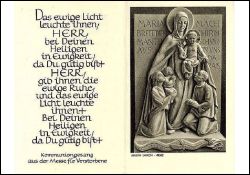 Das ewige Licht
leuchte ihnen,
HERR,
bei Deinen
Heiligen
in Ewigkeit,
da Du gütig bist+
HERR,
gib ihnen die
ewige Ruhe,
und das ewige
Licht leuchte
ihnen+
Bei Deinen
Heiligen
in Ewigkeit,
da Du gütig bist
Kommuniongesang
aus der Messe für Verstorbene
MARIA
MACH
BREIT